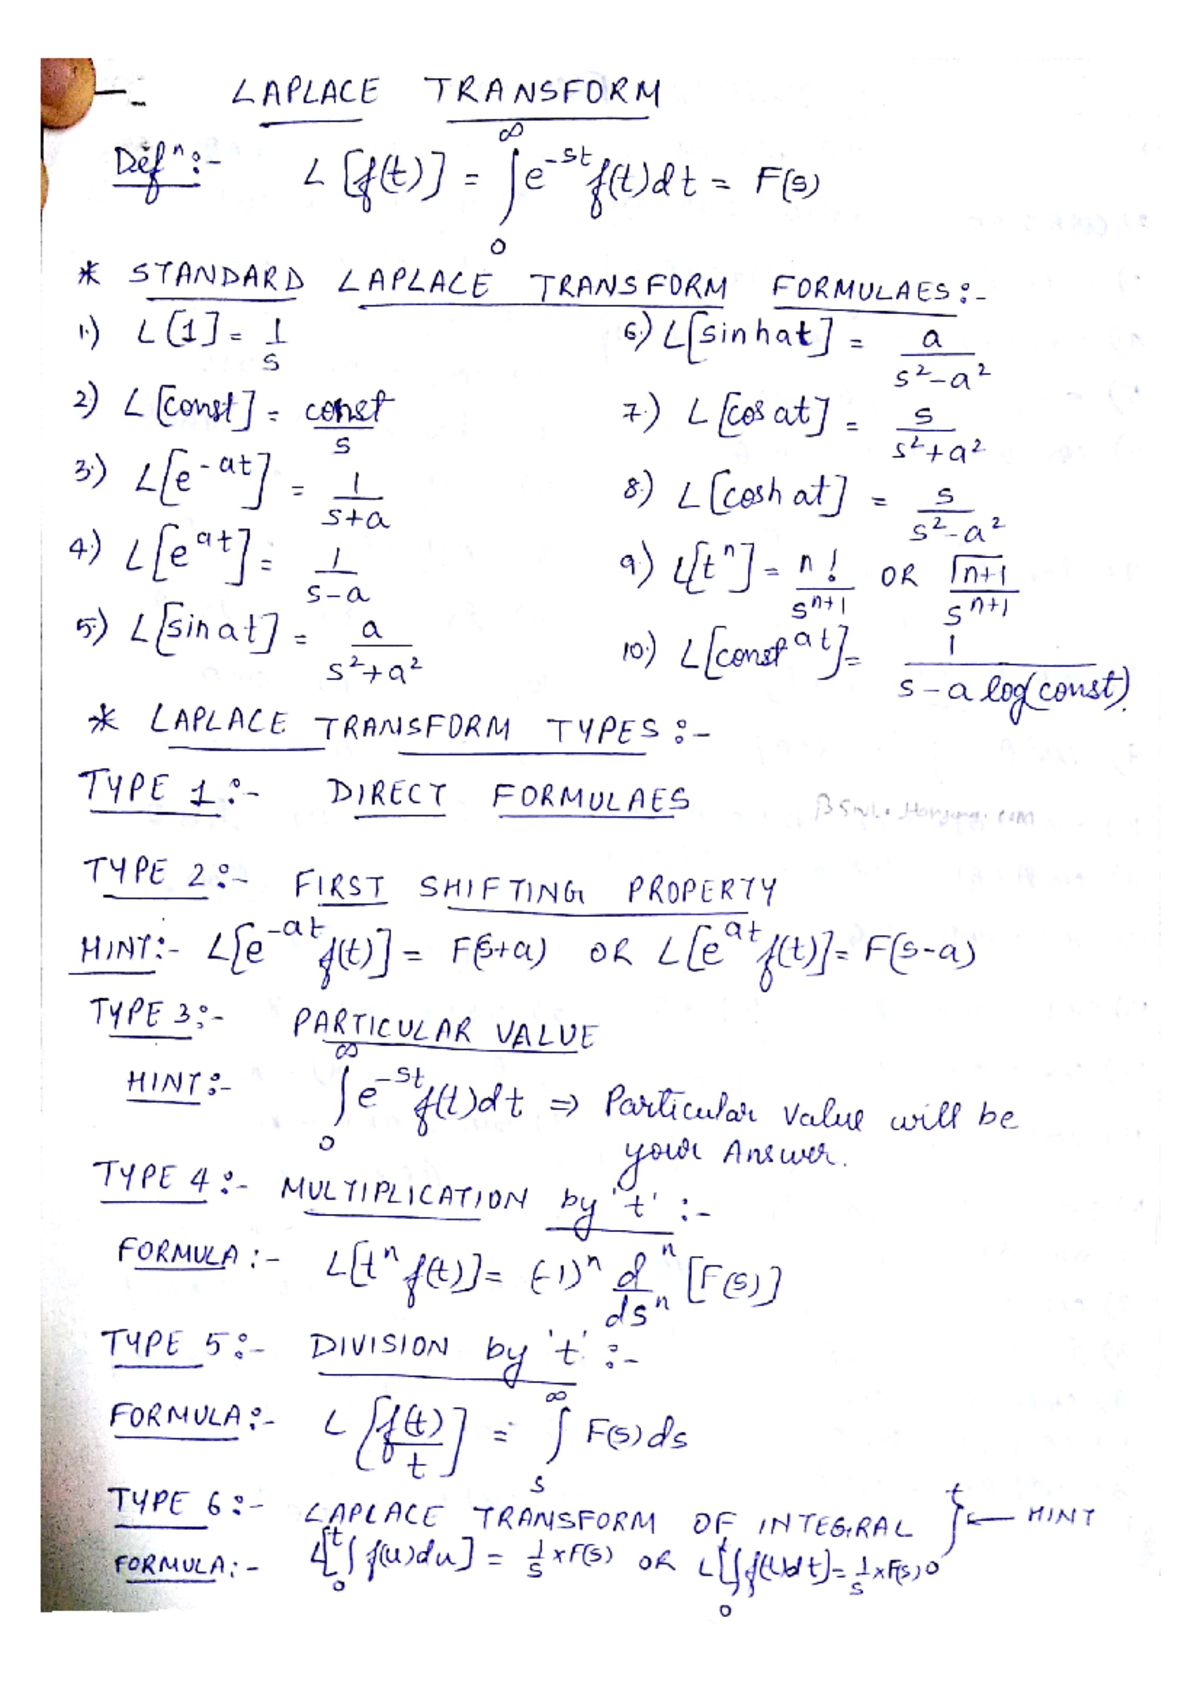 LAPLACE TRANSFORM
Defⁿ:- L[f(t)] = ∫₀^∞ e^-st f(t)dt = F(s)
* STANDARD LAPLACE TRANSFORM FORMULAES:-
1.) L[1] = 1/s
2) L[const] = const/s
3.) L[e^-at] = 1/(s+a)
4.) L[e^at] = 1/(s-a)
5.) L[sin at] = a/(s²+a²)
6.) L[sinhat] = a/(s²-a²)
7.) L[cos at] = s/(s²+a²)
8.) L[cosh at] = s/(s²-a²)
9.) L[tⁿ] = n!/s^(n+1) OR Γn+1/s^(n+1)
10.) L[const^at] = 1/(s-a log(const)).
* LAPLACE TRANSFORM TYPES:-
TYPE 1:- DIRECT FORMULAES
TYPE 2:- FIRST SHIFTING PROPERTY
HINT:- L[e^-at f(t)] = F(s+a) OR L[e^at f(t)] = F(s-a)
TYPE 3:- PARTICULAR VALUE
HINT:- ∫₀^∞ e^-st f(t)dt ⇒ Particular Value will be
your Answer.
TYPE 4:- MULTIPLICATION by 't' :-
FORMULA:- L[tⁿ f(t)] = (-1)ⁿ dⁿ/dsⁿ [F(s)]
TYPE 5:- DIVISION by 't' :-
FORMULA:- L[f(t)/t] = ∫ₛ^∞ F(s)ds
TYPE 6:- LAPLACE TRANSFORM OF INTEGRAL ∫₀^t ← HINT
FORMULA:- L[∫₀^t f(u)du] = 1/s × F(s) OR L[∫₀^t f(t)dt] = 1/s × F(s)